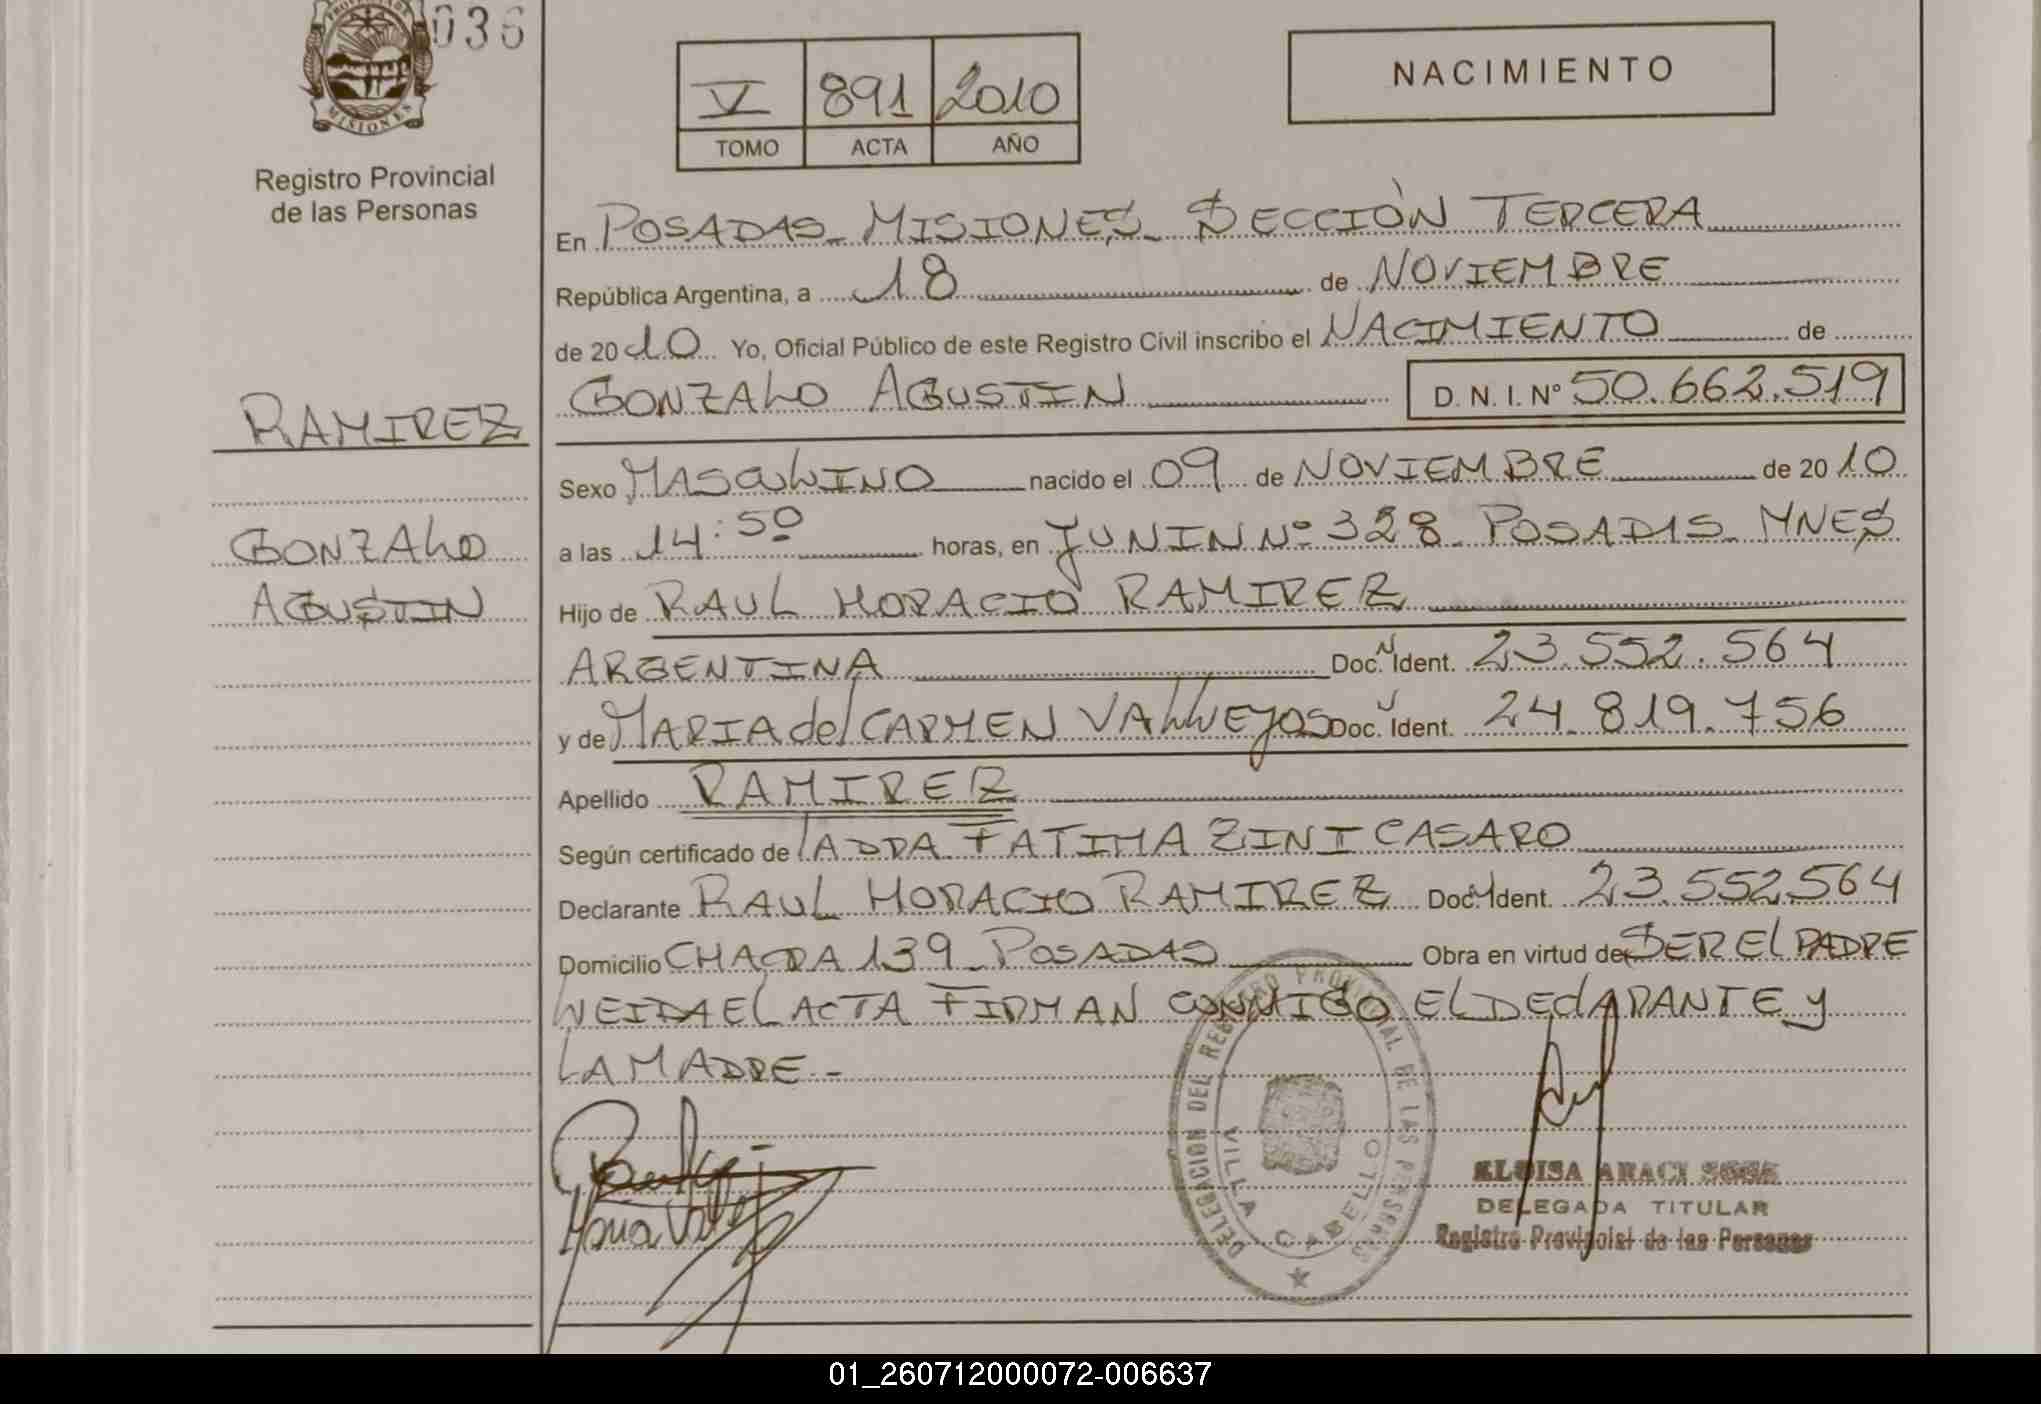 036
PROVINCIA DE
MISIONES
Registro Provincial
de las Personas
V 891 2010
TOMO ACTA AÑO
NACIMIENTO
En POSADAS_MISIONES_SECCIÓN TERCERA
República Argentina, a 18 de NOVIEMBRE
de 2010 Yo, Oficial Público de este Registro Civil inscribo el NACIMIENTO de
GONZALO AGUSTIN D. N. I. Nº 50.662.519
RAMIREZ
GONZALO
AGUSTIN
Sexo MASCULINO nacido el 09 de NOVIEMBRE de 2010
a las 14:50 horas, en JUNIN Nº 328_POSADAS_MNES
Hijo de RAUL HORACIO RAMIREZ
ARGENTINA Doc. Ident. 23.552.564
y de MARIA del CARMEN VALLEJOS Doc. Ident. 24.819.756
Apellido RAMIREZ
Según certificado de LA DRA FATIMA ZINI CASARO
Declarante RAUL HORACIO RAMIREZ Doc. Ident. 23.552.564
Domicilio CHACRA 139_POSADAS Obra en virtud de SER EL PADRE
LEIDA EL ACTA FIRMAN CONMIGO EL DECLARANTE y
LA MADRE.-
DELEGACION DEL REGISTRO PROVINCIAL DE LAS PERSONAS
VILLA CABELLO
Maria
ELOISA ARACI
DELEGADA TITULAR
Registro Provincial de las Personas
01_260712000072-006637